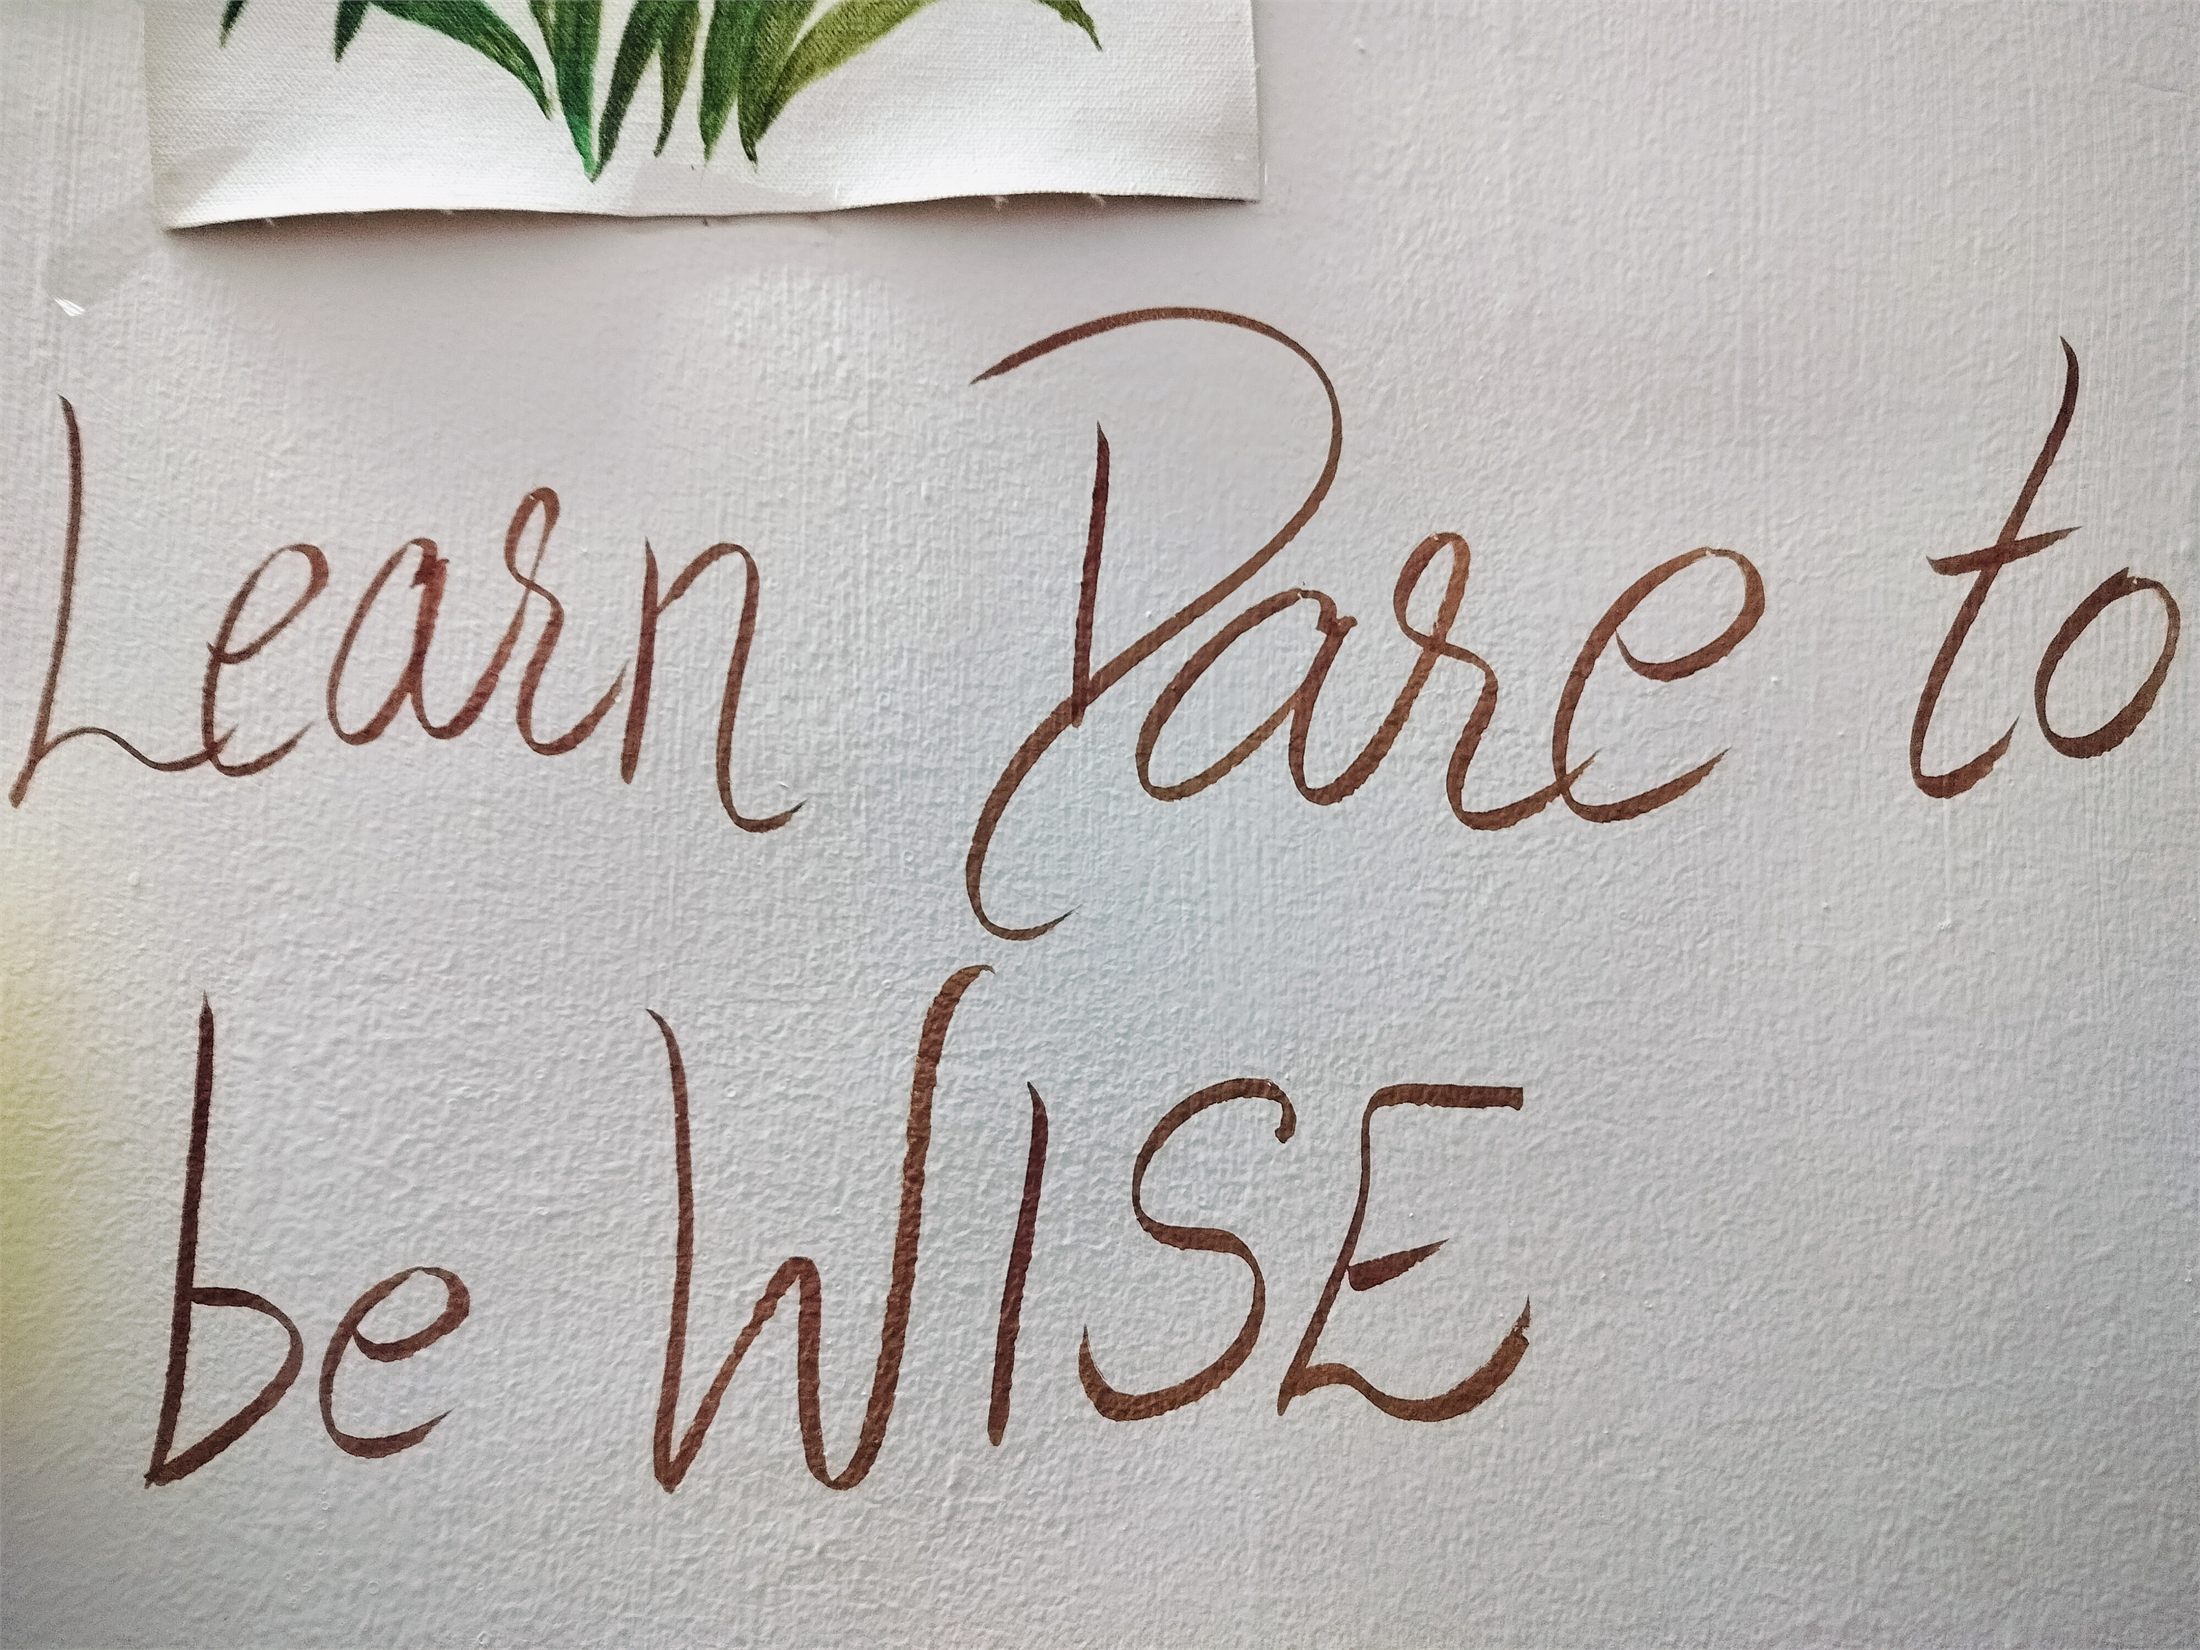 Learn Dare to
be WISE